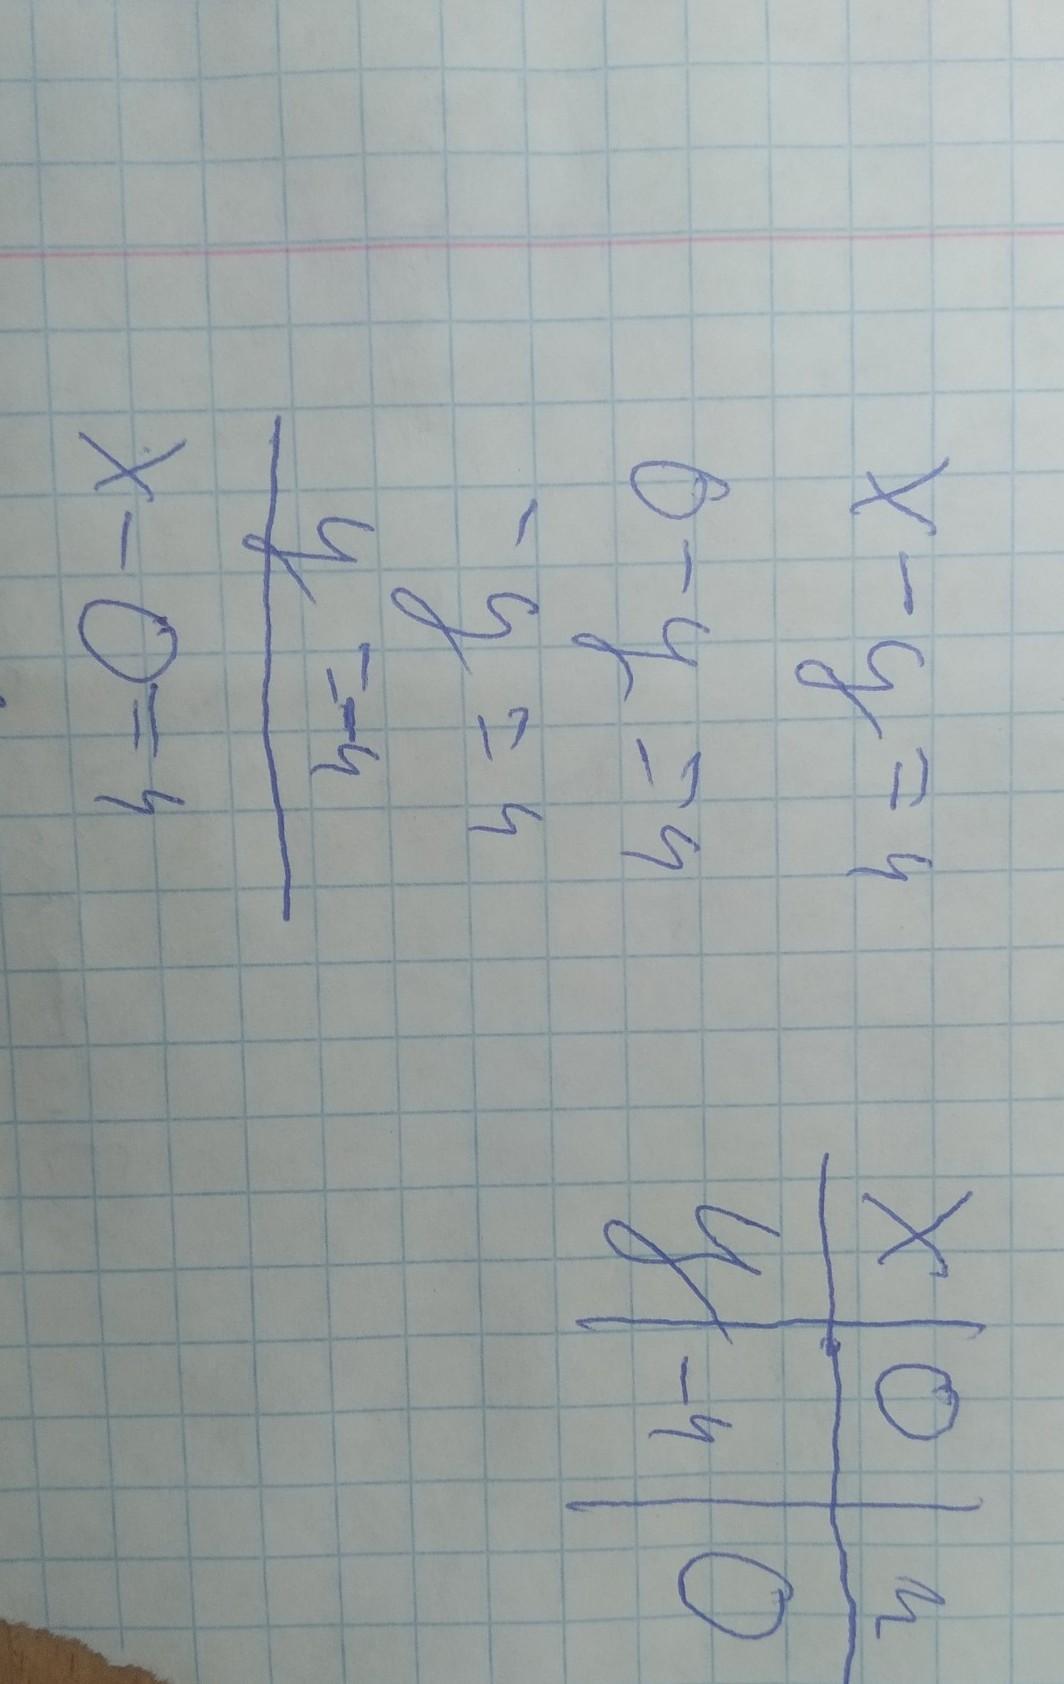 x - y = 4
0 - y = 4
- y = 4
y = -4
x - 0 = 4
x 0 4
y -4 0